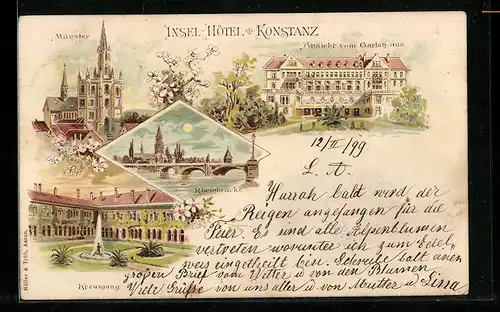 INSEL-HÔTEL KONSTANZ
Münster
Ansicht vom Garten aus
Rheinbrücke
Kreuzgang
Müller & Trüb, Aarau.
12/II/99.
L. A.
Hurrah bald wird der
Reigen angefangen für die
Feier. Es sind alle Alpenblumen
vertreten worunter ich zum Edel
weis eingetheilt bin. Schreibe balt einen
großen Brief vom Vetter u von den Blumen
Viele Grüße von uns aller u von Mutter u Lina